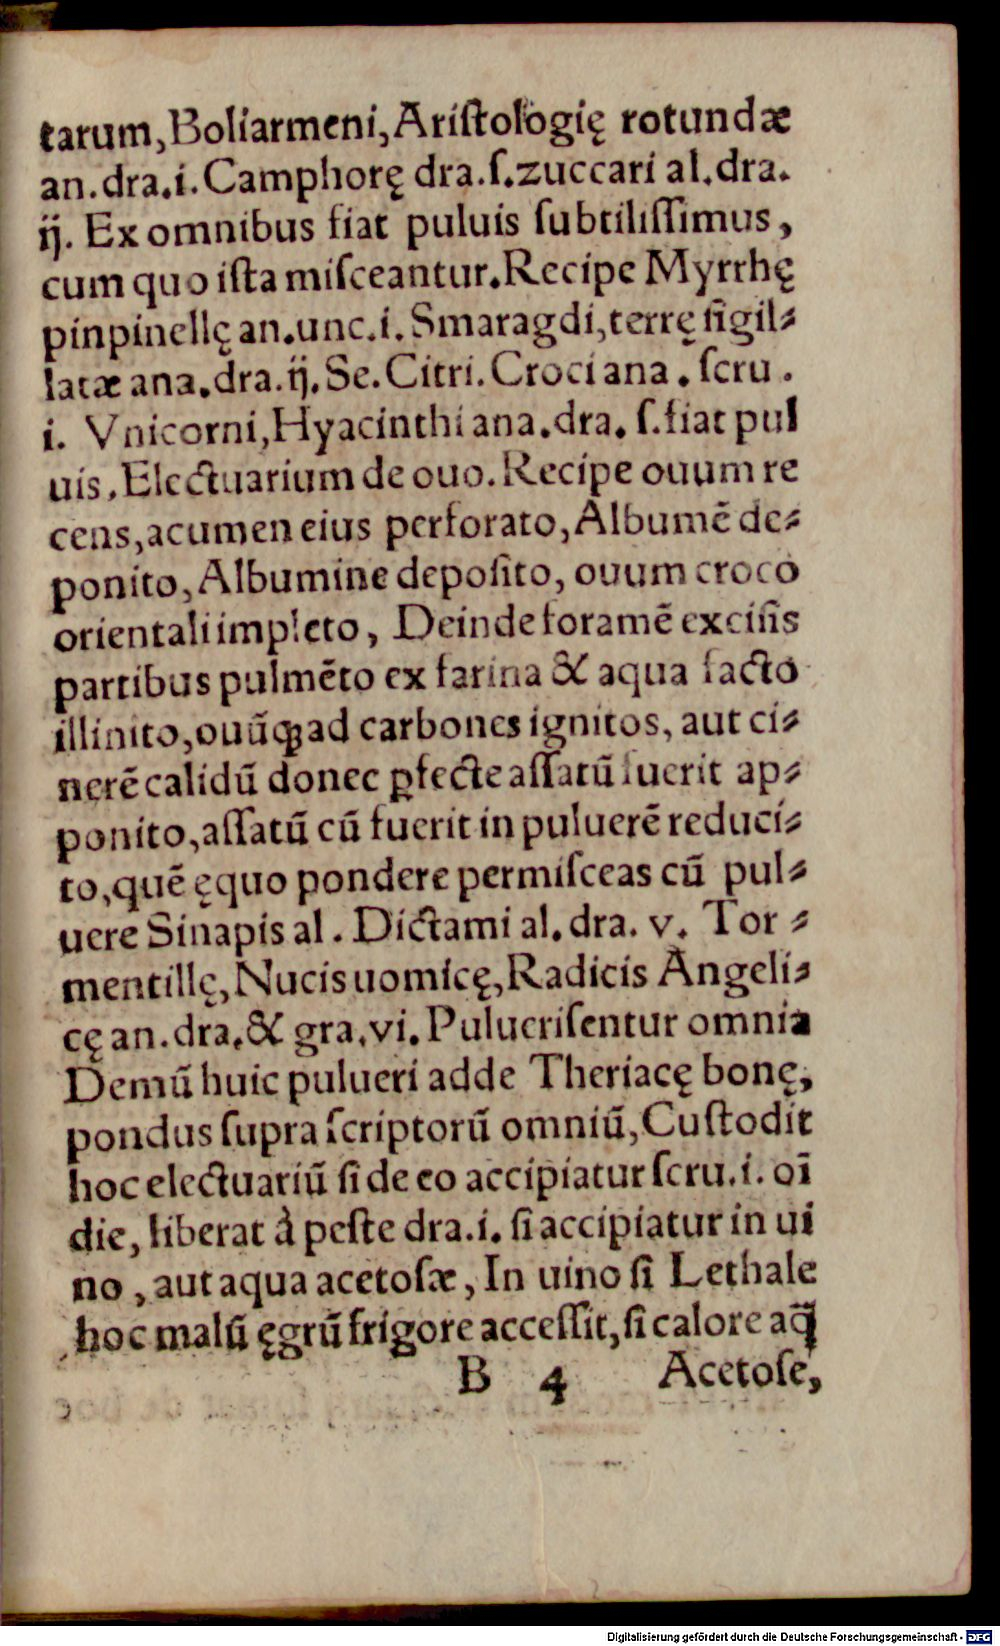 tarum, Boliarmeni, Ariſtologię rotundæ
an. dra. i. Camphorę dra. ſ. zuccari al. dra.
ij. Ex omnibus fiat puluis ſubtiliſſimus,
cum quo iſta miſceantur. Recipe Myrrhę
pinpinellę an. unc. i. Smaragdi, terrę ſigil⸗
latæ ana. dra. ij. Se. Citri. Croci ana. ſcru.
i. Vnicorni, Hyacinthi ana. dra. ſ. fiat pul
uis, Electuarium de ouo. Recipe ouum re
cens, acumen eius perforato, Albumē de⸗
ponito, Albumine depoſito, ouum croco
orientali impleto, Deinde foramē exciſis
partibus pulmēto ex farina & aqua facto
illinito, ouūꝙ ad carbones ignitos, aut ci⸗
nerē calidū donec ꝑfecte aſſatū fuerit ap⸗
ponito, aſſatū cū fuerit in puluerē reduci⸗
to, quē ęquo pondere permiſceas cū pul⸗
uere Sinapis al. Dictami al. dra. v. Tor⸗
mentillę, Nucis uomicę, Radicis Angeli⸗
cę an. dra. & gra. vi. Pulueriſentur omnia
Demū huic pulueri adde Theriacę bonę,
pondus ſupra ſcriptorū omniū, Cuſtodit
hoc electuariū ſi de eo accipiatur ſcru. i. oī
die, liberat à peſte dra. i. ſi accipiatur in ui
no, aut aqua acetoſæ, In uino ſi Lethale
hoc malū ęgrū frigore acceſſit, ſi calore aq̄
B 4 Acetoſe,
Digitalisierung gefördert durch die Deutsche Forschungsgemeinschaft - DFG